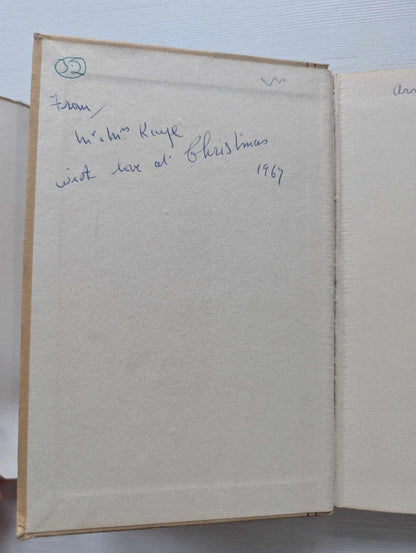 32
From/
Mr & Mrs Kaye
with love at Christmas
1967
Ann